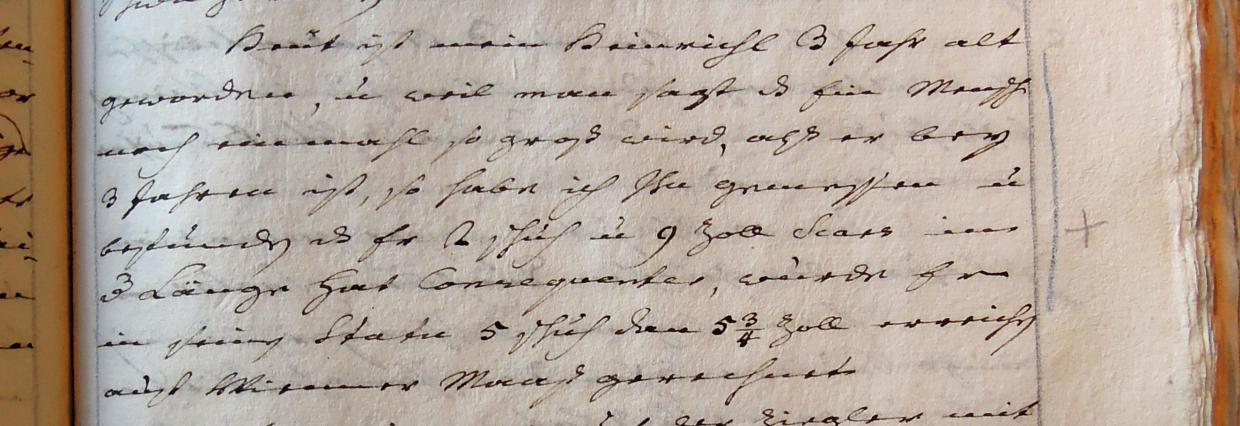 Heüt ist mein Heinrichl 3 Jahr alt
geworden, ü weil man sagt ds Ein Mensch
noch einmahl so groß wird, alß er bey
3 Jahren ist, so habe ich Ihn gemessen ü
befunden ds Er 2 schuh ü 9 Zoll
Länge hat Consequenter, würde Er
in seiner Statu 5 schuh den 5 3/4 Zoll erreichen
auf Wienner Maaß gerechnet
der Ziegler mit